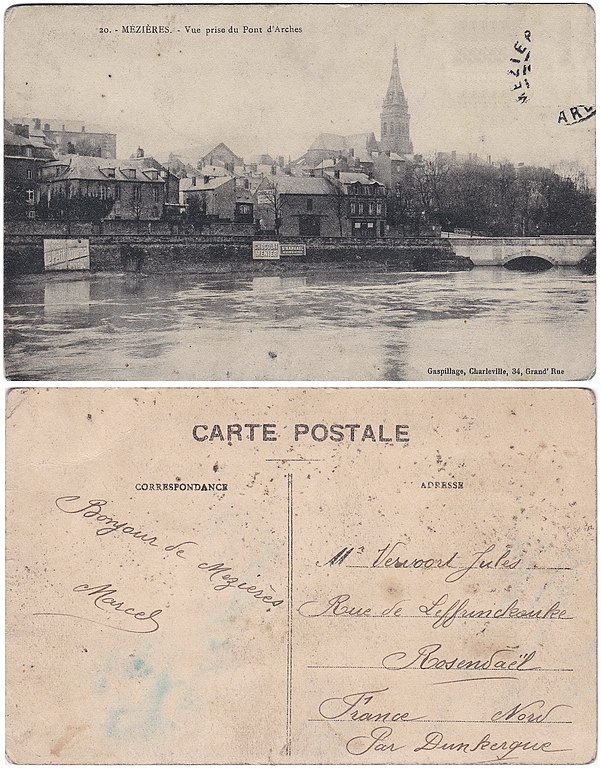 20. - MÉZIÈRES. - Vue prise du Pont d'Arches
MEZIER
ARD
CHOCOLAT
MENIER
Gaspillage, Charleville, 34, Grand' Rue
CARTE POSTALE
CORRESPONDANCE
Bonjour de Mezières
Marcel
ADRESSE
Mr Vervoort Jules
Rue de Leffrinckouke
Rosendaël
France Nord
Par Dunkerque